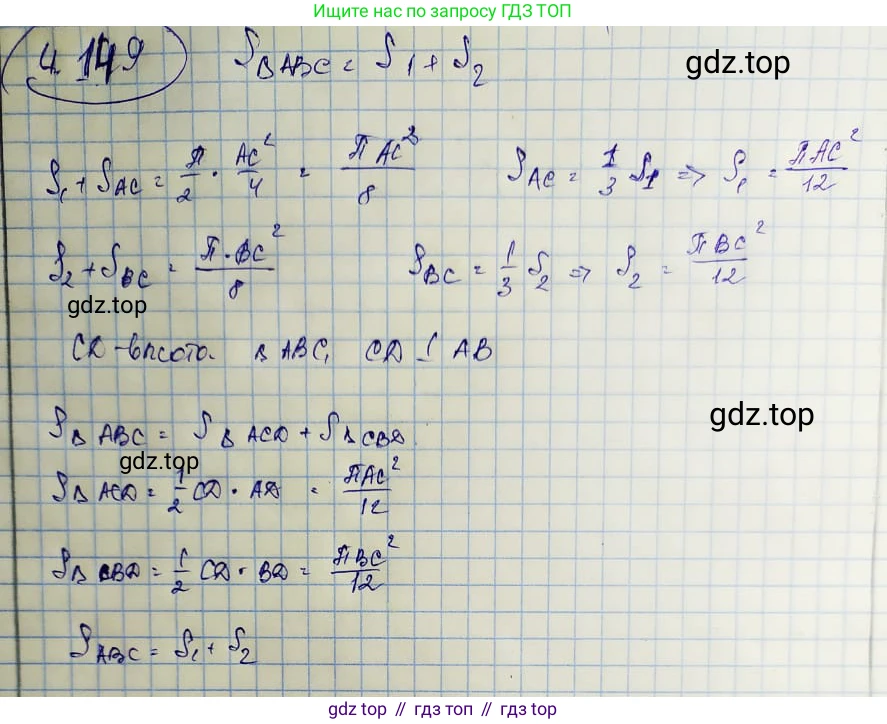 Ищите нас по запросу ГДЗ ТОП
4.149 S△ABC = S₁ + S₂
gdz.top
S₁ + S_AC = π/2 · AC²/4 = πAC²/8 S_AC = 1/3 S₁ => S₁ = πAC²/12
S₂ + S_BC = π·BC²/8 S_BC = 1/3 S₂ => S₂ = πBC²/12
gdz.top
CD - высота △ABC, CD ⊥ AB
gdz.top
S△ABC = S△ACD + S△CBD
gdz.top
S△ACD = 1/2 CD · AD = πAC²/12
S△CBD = 1/2 CD · BD = πBC²/12
S_ABC = S₁ + S₂
gdz.top // гдз топ // gdz top